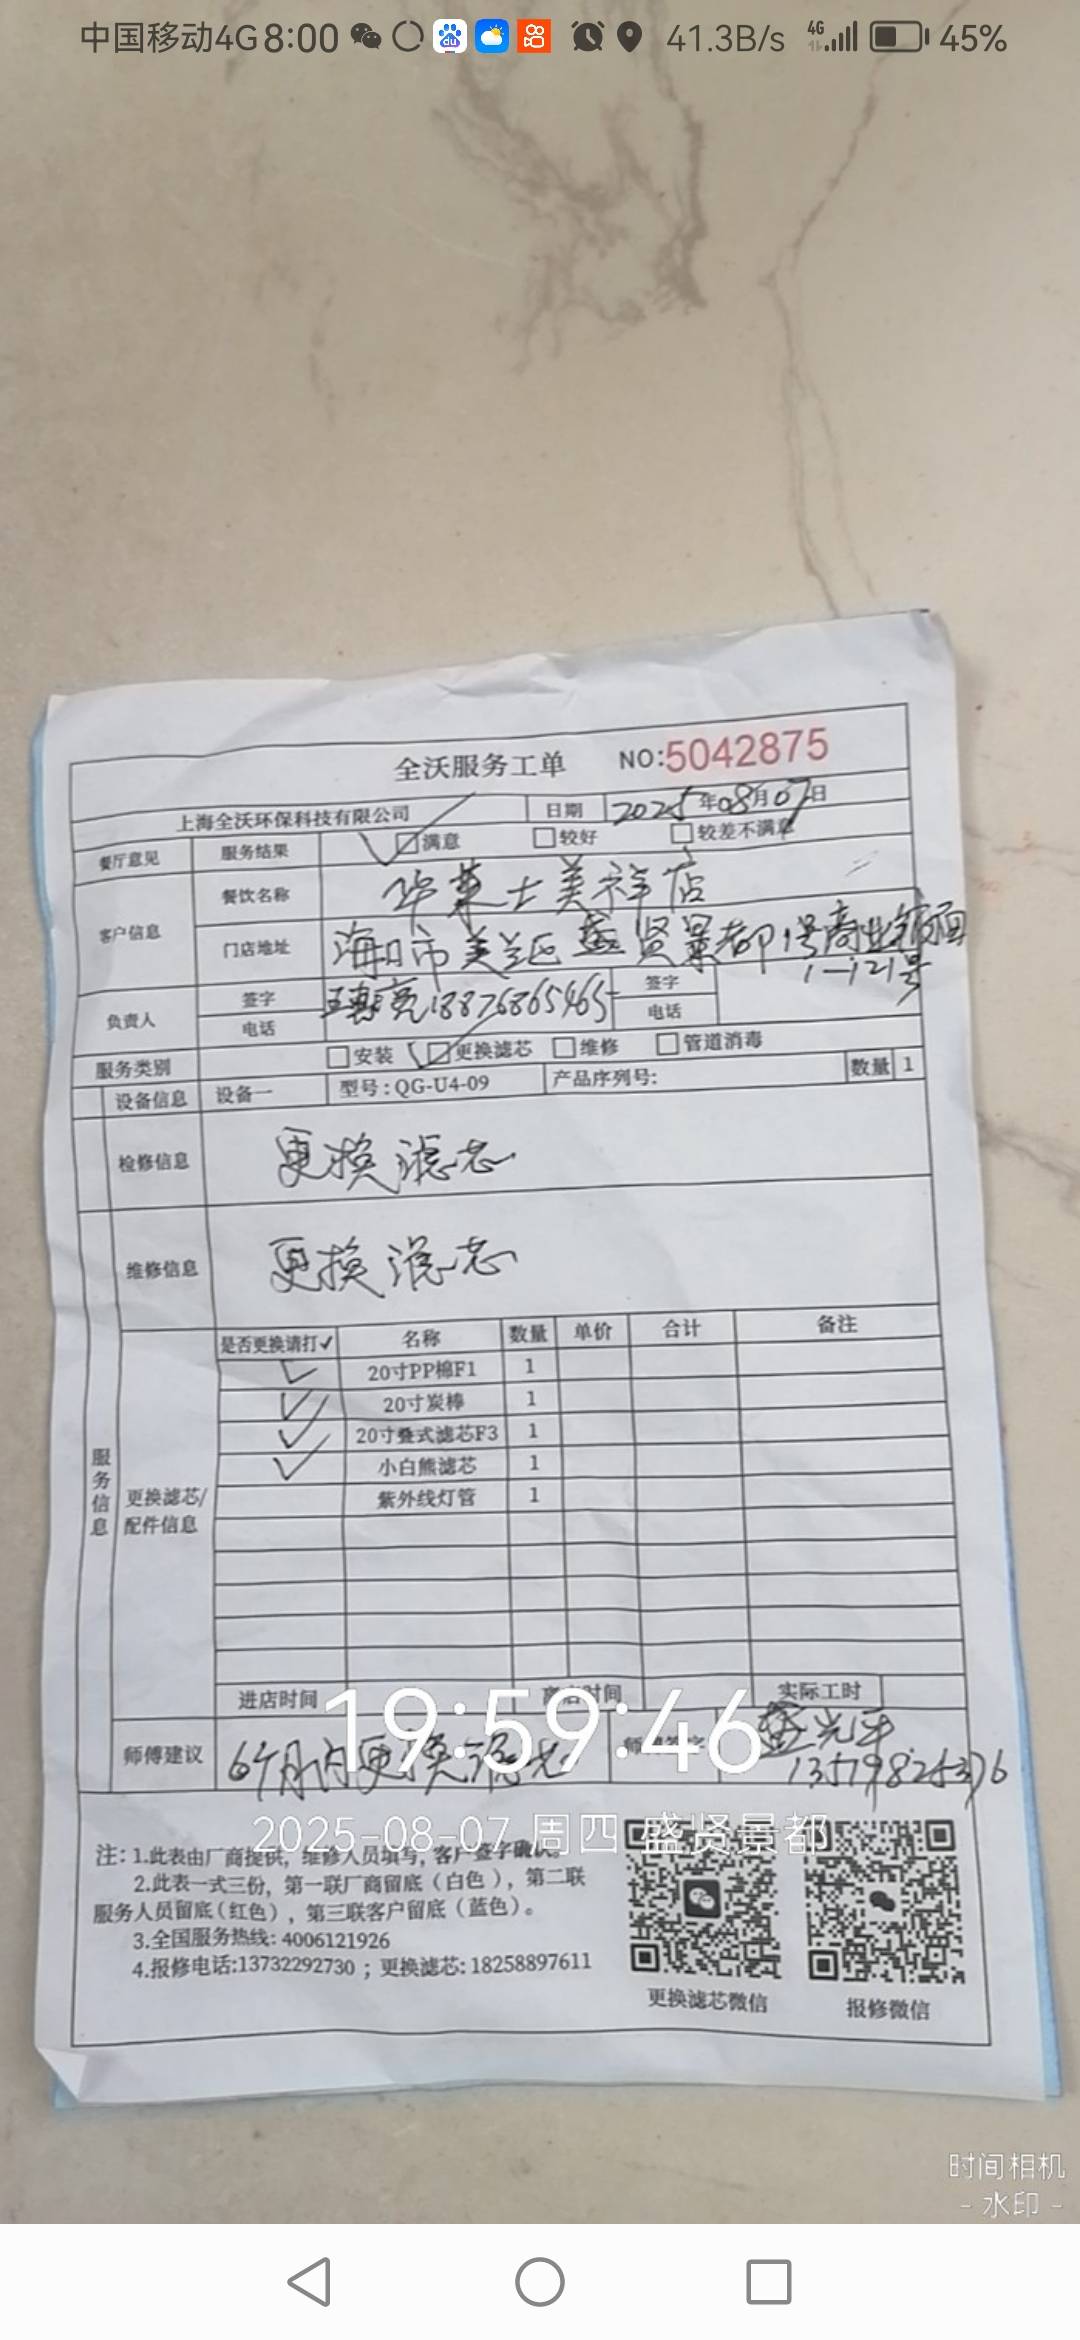 中国移动4G 8:00 41.3B/s 4G 45%
全沃服务工单 NO:5042875
上海全沃环保科技有限公司 日期 2025年08月07日
餐厅意见 服务结果 满意 较好 较差不满意
客户信息 餐饮名称 华莱士美祥店
门店地址 海口市美兰区盛贤景都1号商业铺面
1-121号
负责人 签字 18876865465 签字
电话 电话
服务类别 安装 更换滤芯 维修 管道消毒
设备信息 设备一 型号:QG-U4-09 产品序列号: 数量 1
检修信息 更换滤芯
维修信息 更换滤芯
服务信息
更换滤芯/配件信息
是否更换请打✓ 名称 数量 单价 合计 备注
✓ 20寸PP棉F1 1
✓ 20寸炭棒 1
✓ 20寸叠式滤芯F3 1
✓ 小白熊滤芯 1
紫外线灯管 1
进店时间 离店时间 实际工时
19:59:46
师傅建议 6个月内更换滤芯 师傅签字 光平
2025-08-07 周四 盛贤景都
注:1.此表由厂商提供,维修人员填写,客户签字确认。
2.此表一式三份,第一联厂商留底(白色),第二联
服务人员留底(红色),第三联客户留底(蓝色)。
3.全国服务热线:4006121926
4.报修电话:13732292730;更换滤芯:18258897611
更换滤芯微信 报修微信
时间相机
- 水印 -